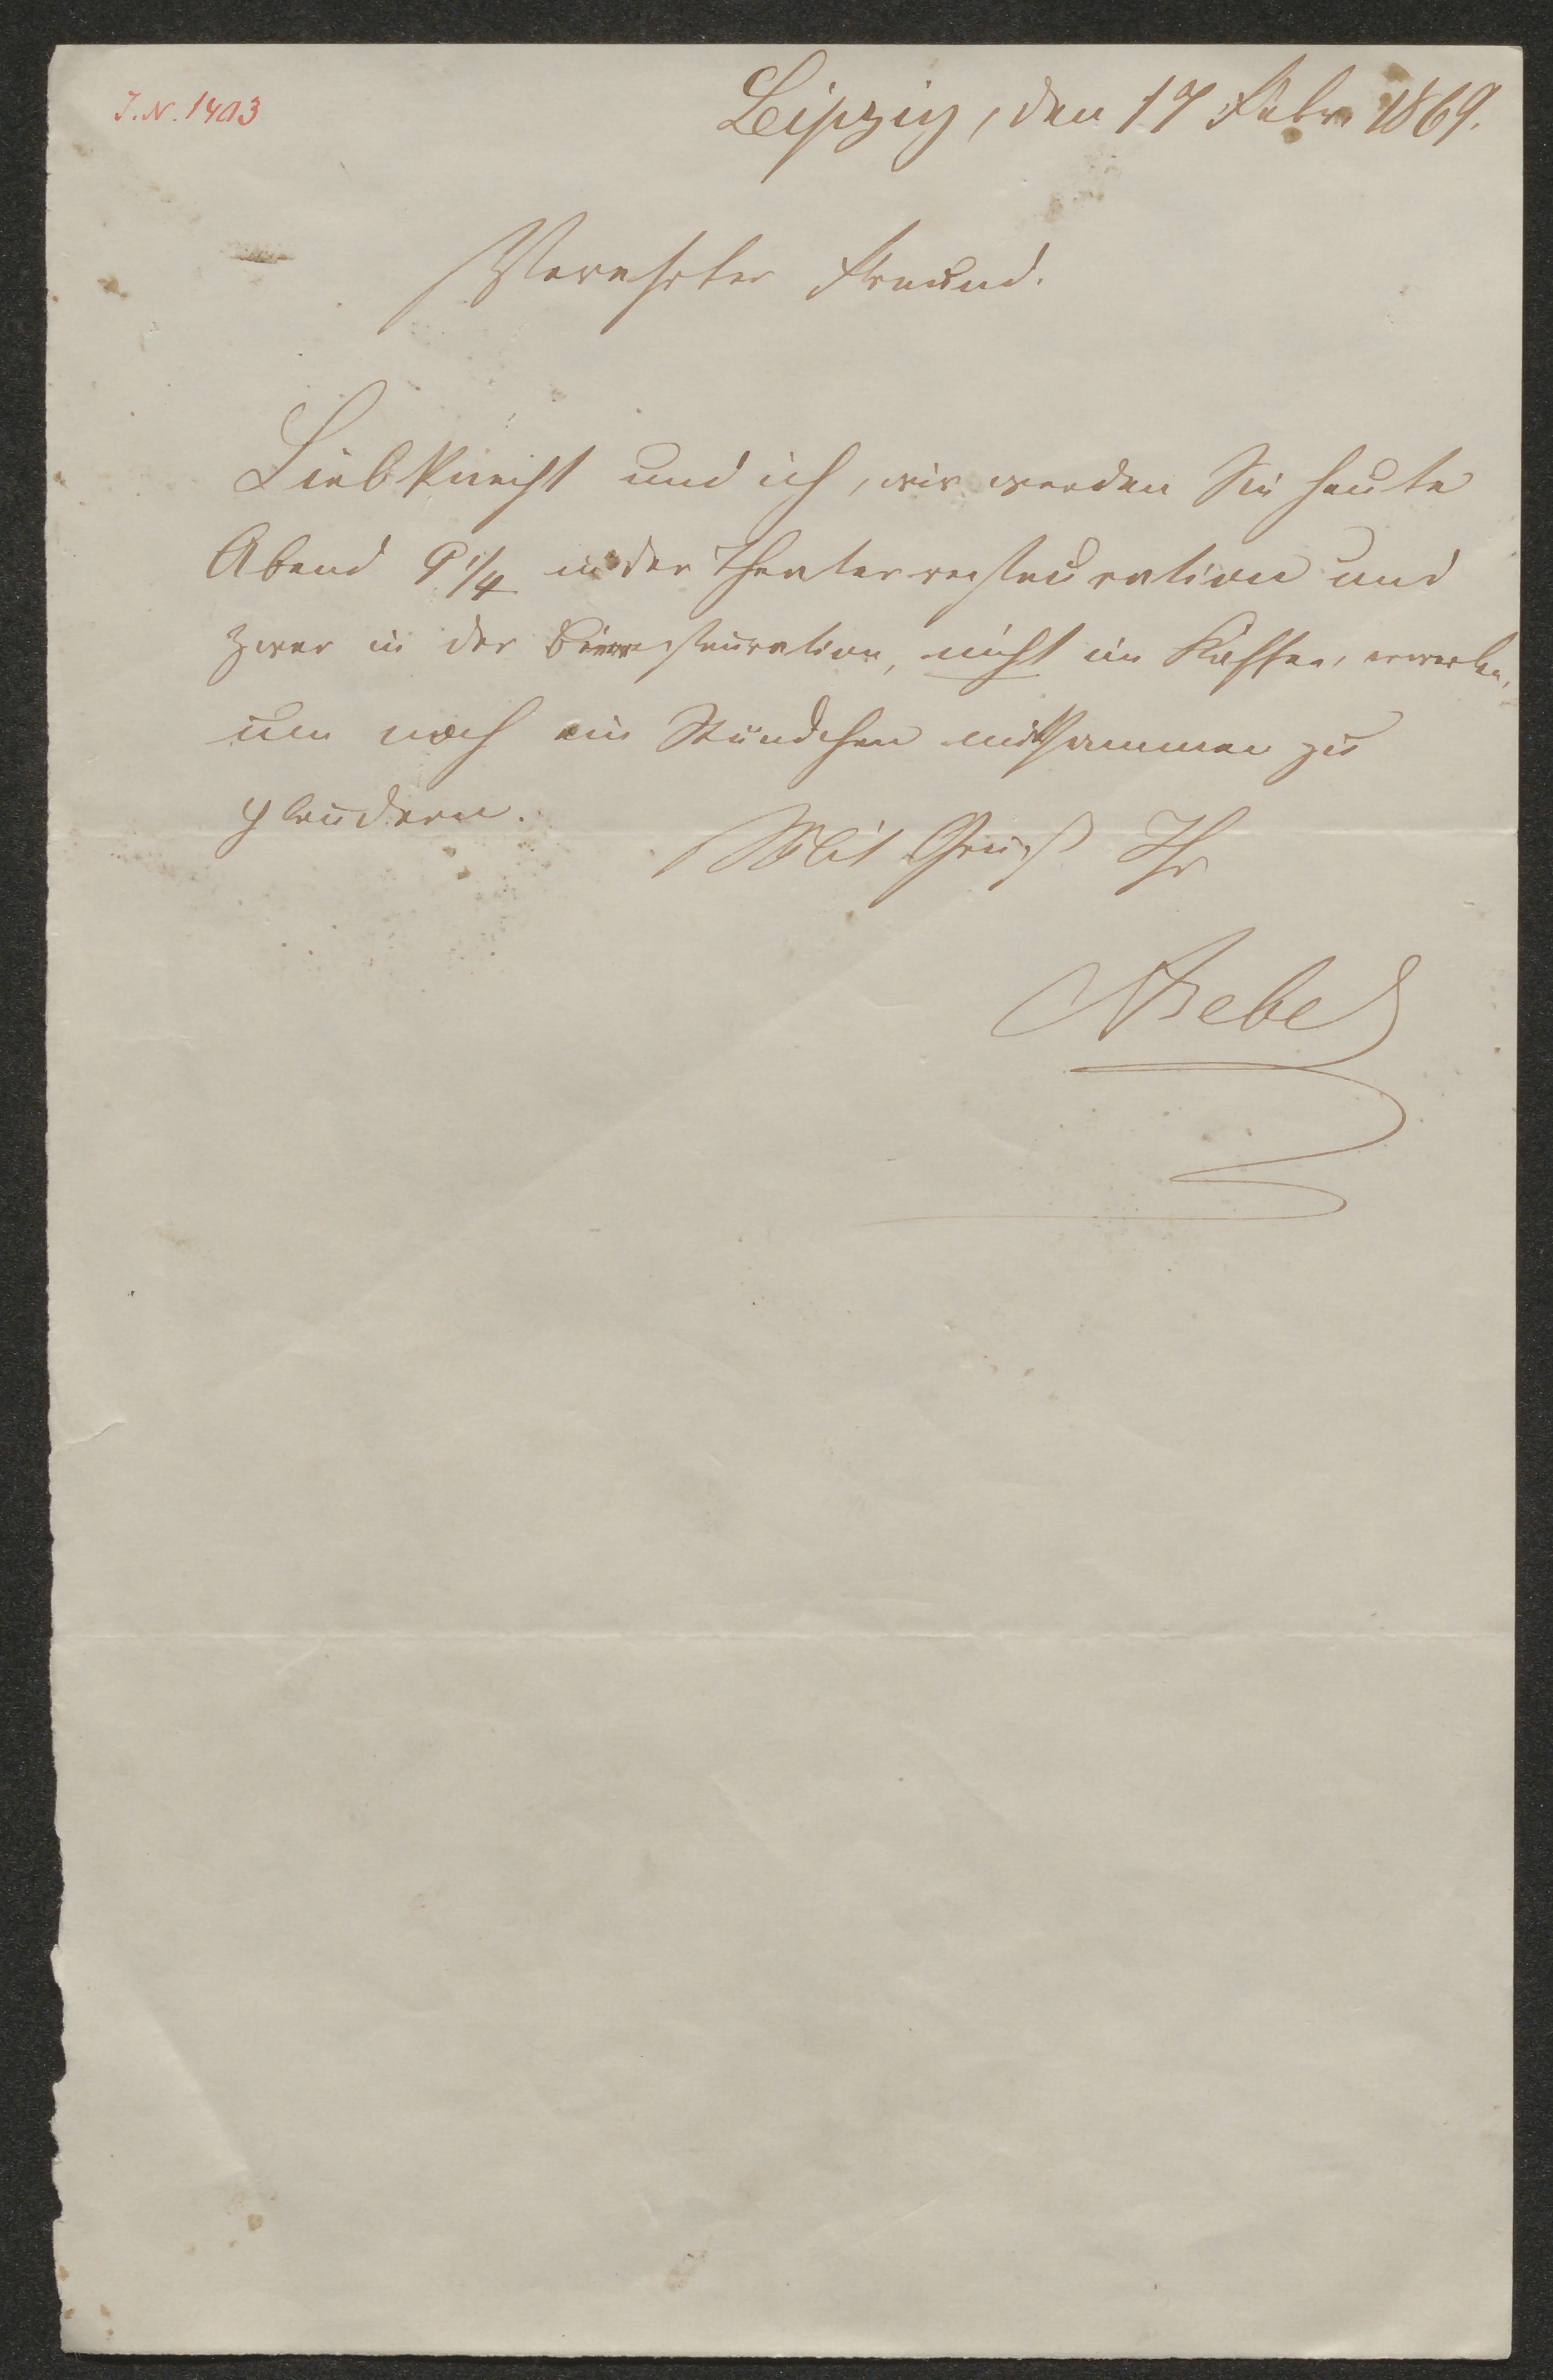 J.N. 1403
Leipzig, den 17 Febr. 1869.
Verehrter Freund.
Liebknecht und ich, wir werden Sie heute
Abend 9 1/4 in der Theaterrestauration und
zwar in der Bierrestauration, nicht im Kaffee, erwarten,
um noch ein Stündchen mitsammen zu
plaudern.
Mit Gruß Ihr
ABebel